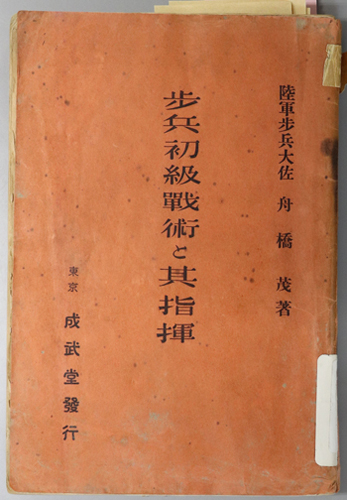 陸軍步兵大佐 舟橋茂著
步兵初級戰術と其指揮
東京 成武堂發行